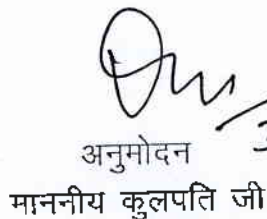 अनुमोदन
माननीय कुलपति जी